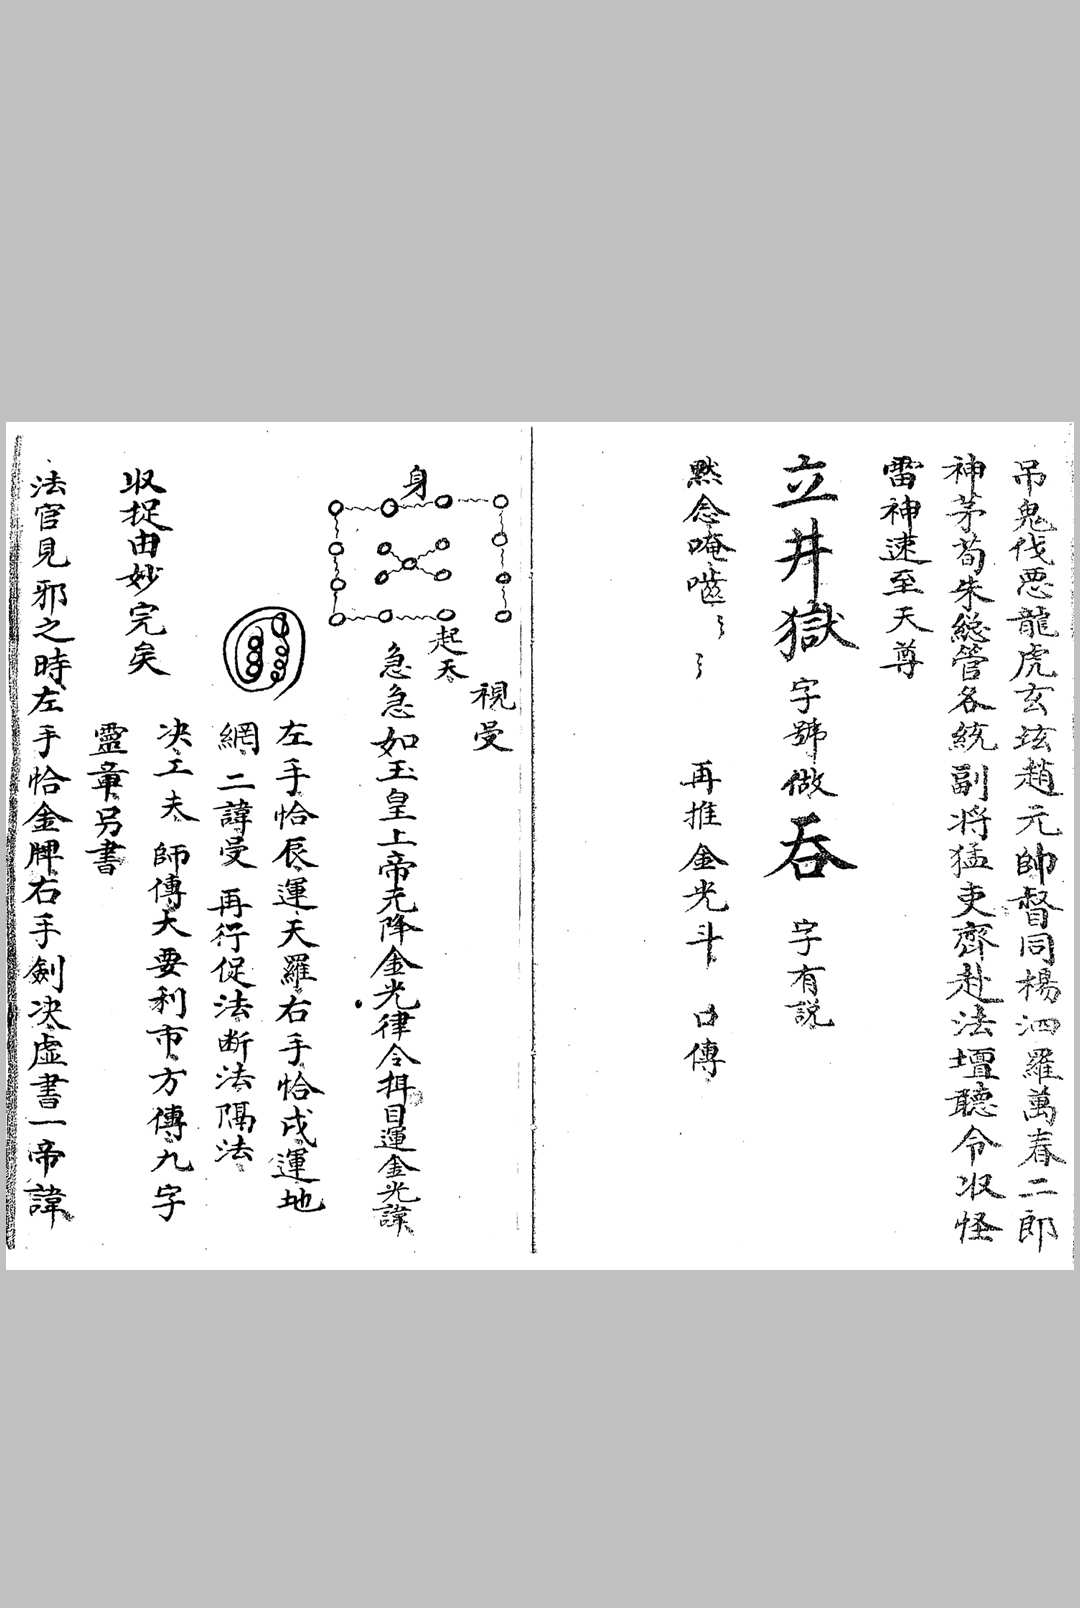 吊鬼伐惡龍虎玄坛趙元帥督同楊泗羅萬春二郎
神茅荀朱総管各統副将猛吏齊赴法壇聽令収怪
雷神速至天尊
立井獄字號做吞字有説
黙念唵嚙〻〻再推金光斗口傳
視旻
起天
身
急急如玉皇上帝光降金光律令揖目運金光諱
左手恰辰運天羅右手恰戌運地
網二諱旻再行促法断法隔法
决工夫師傳大要利市方傳九字
収捉由妙完矣
靈章另書
法官見邪之時左手恰金牌右手劍决虚書一帝諱